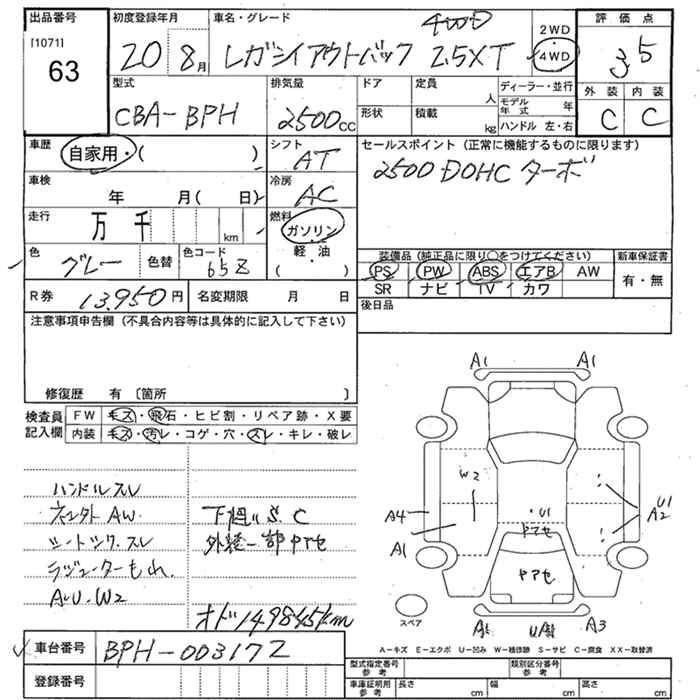 出品番号 初度登録年月 車名・グレード 評価点
[1071] 63
20 8月 レガシィアウトバック 4WD 2.5XT
2WD
4WD
3.5
外装 内装
C C
型式 排気量 ドア 定員 人 ディーラー・並行
CBA-BPH 2500cc
形状 積載 kg モデル年式 年
ハンドル 左・右
車歴 自家用・( ) シフト AT
セールスポイント (正常に機能するものに限ります)
2500 DOHC ターボ
車検 年 月( 日) 冷房 AC
走行 万 千 km 燃料 ガソリン・軽・油 ( )
色 グレー 色替 色コード 65Z
装備品 (純正品に限り○をつけてください) 新車保証書
PS PW ABS エアB AW
SR ナビ TV カワ
有・無
R券 13,950円 名変期限 月 日
後日品
注意事項申告欄 (不具合内容等は具体的に記入して下さい)
修復歴 有 〔箇所 〕
検査員記入欄
FW キズ・飛石・ヒビ割・リペア跡・X要
内装 キズ・汚レ・コゲ・穴・スレ・キレ・破レ
ハンドルスレ
AW.
下廻り S. C
シートシワ.スレ
外装一部ヤアセ
ラジエーターもれ.
AU.W2
オド149845km
A1 A1
W2
A4
A1
U1
ヤアセ
ヤアセ
U1
A2
A3
スペア
A-キズ E-エクボ U-凹み W-補修跡 S-サビ C-腐食 XX-取替済
車台番号 BPH-003172
登録番号
型式指定番号 参考 類別区分番号 参考
車庫証明用 参考 長さ cm 幅 cm 高さ cm